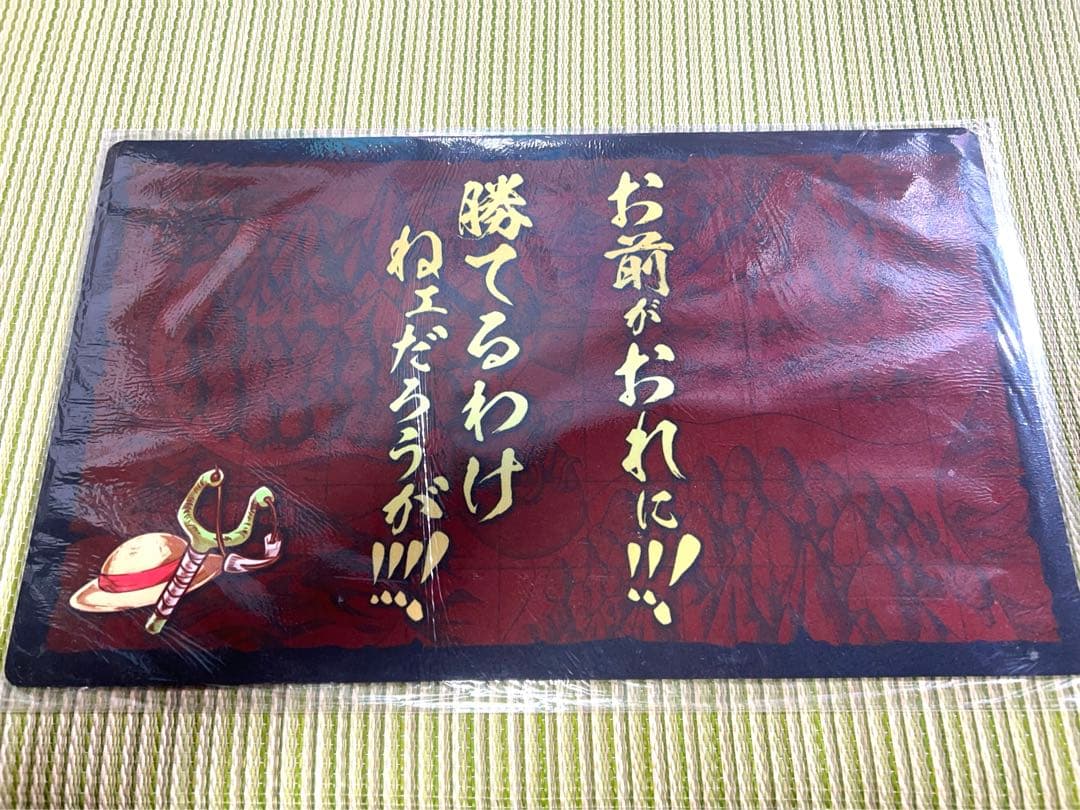 お前がおれに!!!
勝てるわけ
ねェだろうが!!!!